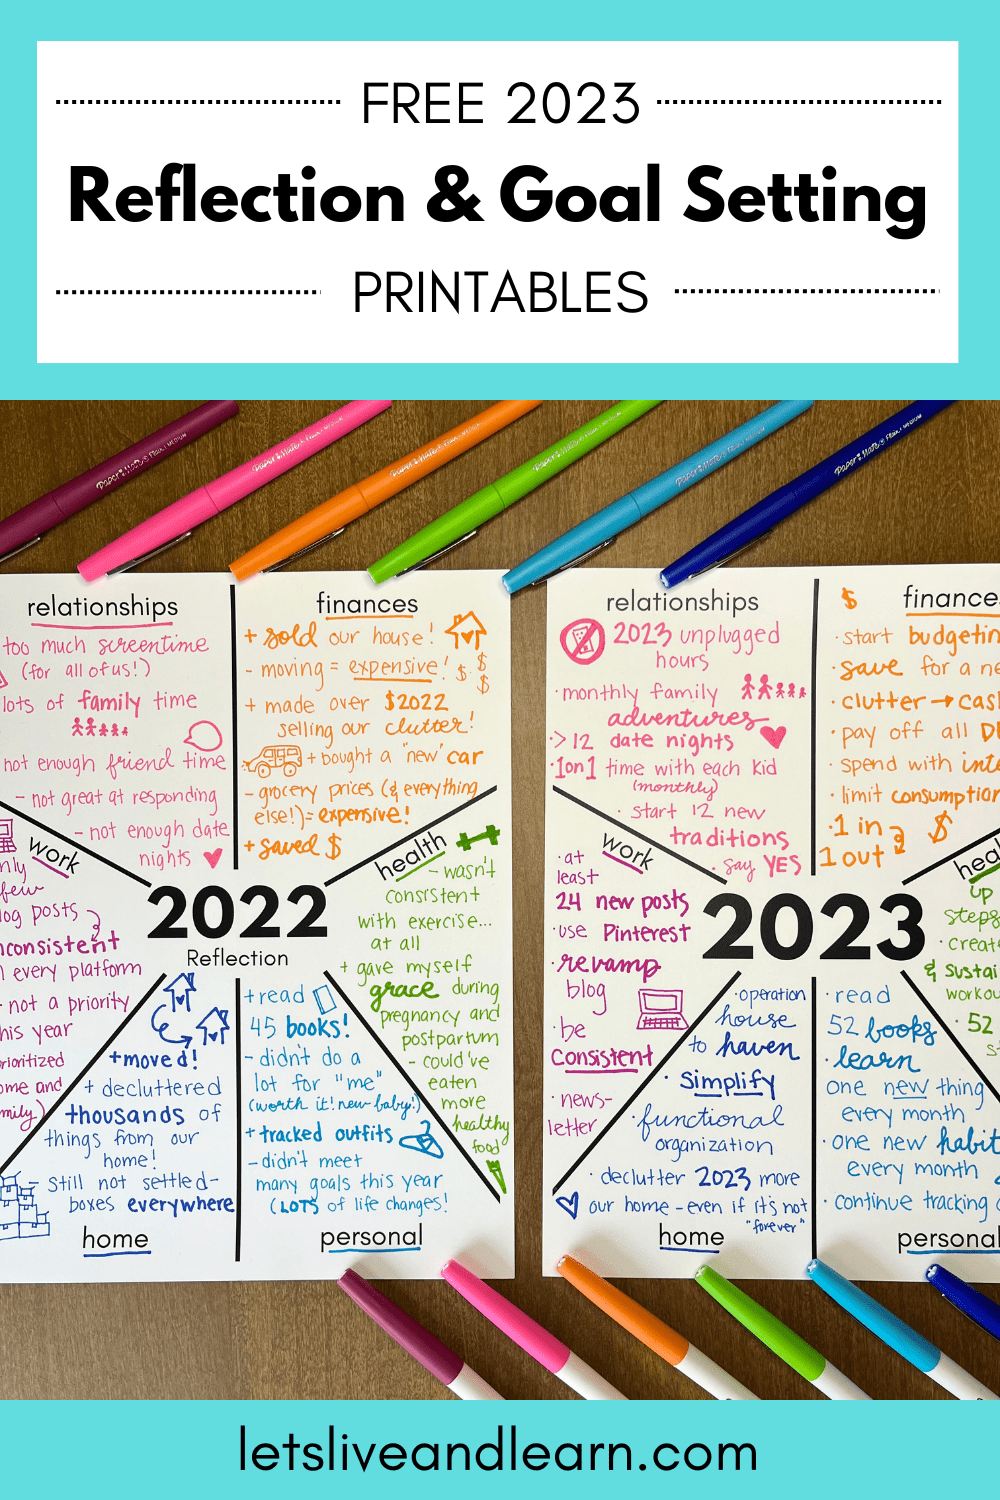 FREE 2023
Reflection & Goal Setting
PRINTABLES
Paper Mate Flair MEDIUM
Paper Mate Flair MEDIUM
Paper Mate
Paper Mate Flair MEDIUM
Paper Mate Flair MEDIUM
Paper Mate Flair MEDIUM
relationships
too much screentime
(for all of us!)
lots of family time
not enough friend time
- not great at responding
- not enough date
nights
finances
+ sold our house!
- moving = expensive! $ $ $
+ made over $2022
selling our clutter!
+ bought a "new" car
- grocery prices (& everything
else!) = expensive!
+ saved $
work
few
posts
inconsistent
every platform
- not a priority
this year
home and
health
- wasn't
consistent
with exercise...
at all
+ gave myself
grace during
pregnancy and
postpartum
- could've
eaten
more
healthy
food
2022
Reflection
+ moved!
+ decluttered
thousands of
things from our
home!
- still not settled -
boxes everywhere
home
+ read
45 books!
- didn't do a
lot for "me"
(worth it! new baby!)
+ tracked outfits
- didn't meet
many goals this year
(LOTS of life changes!)
personal
relationships
2023 unplugged
hours
· monthly family
adventures
· > 12 date nights
· 1on1 time with each kid
(monthly)
· start 12 new
traditions
· say YES
$ finances
· start
· save for a
· clutter → 
· pay off all
· spend with
· limit
· 1 in
1 out $
work
· at
least
24 new posts
· use Pinterest
· revamp
blog
· be
consistent
· news-
letter
up
steps
· create
& 
· 52
2023
· operation
house
to haven
· simplify
· functional
organization
· declutter 2023 more
our home - even if it's not
"forever"
home
· read
52 books
· learn
one new thing
every month
· one new
every month
· continue tracking
personal
letsliveandlearn.com